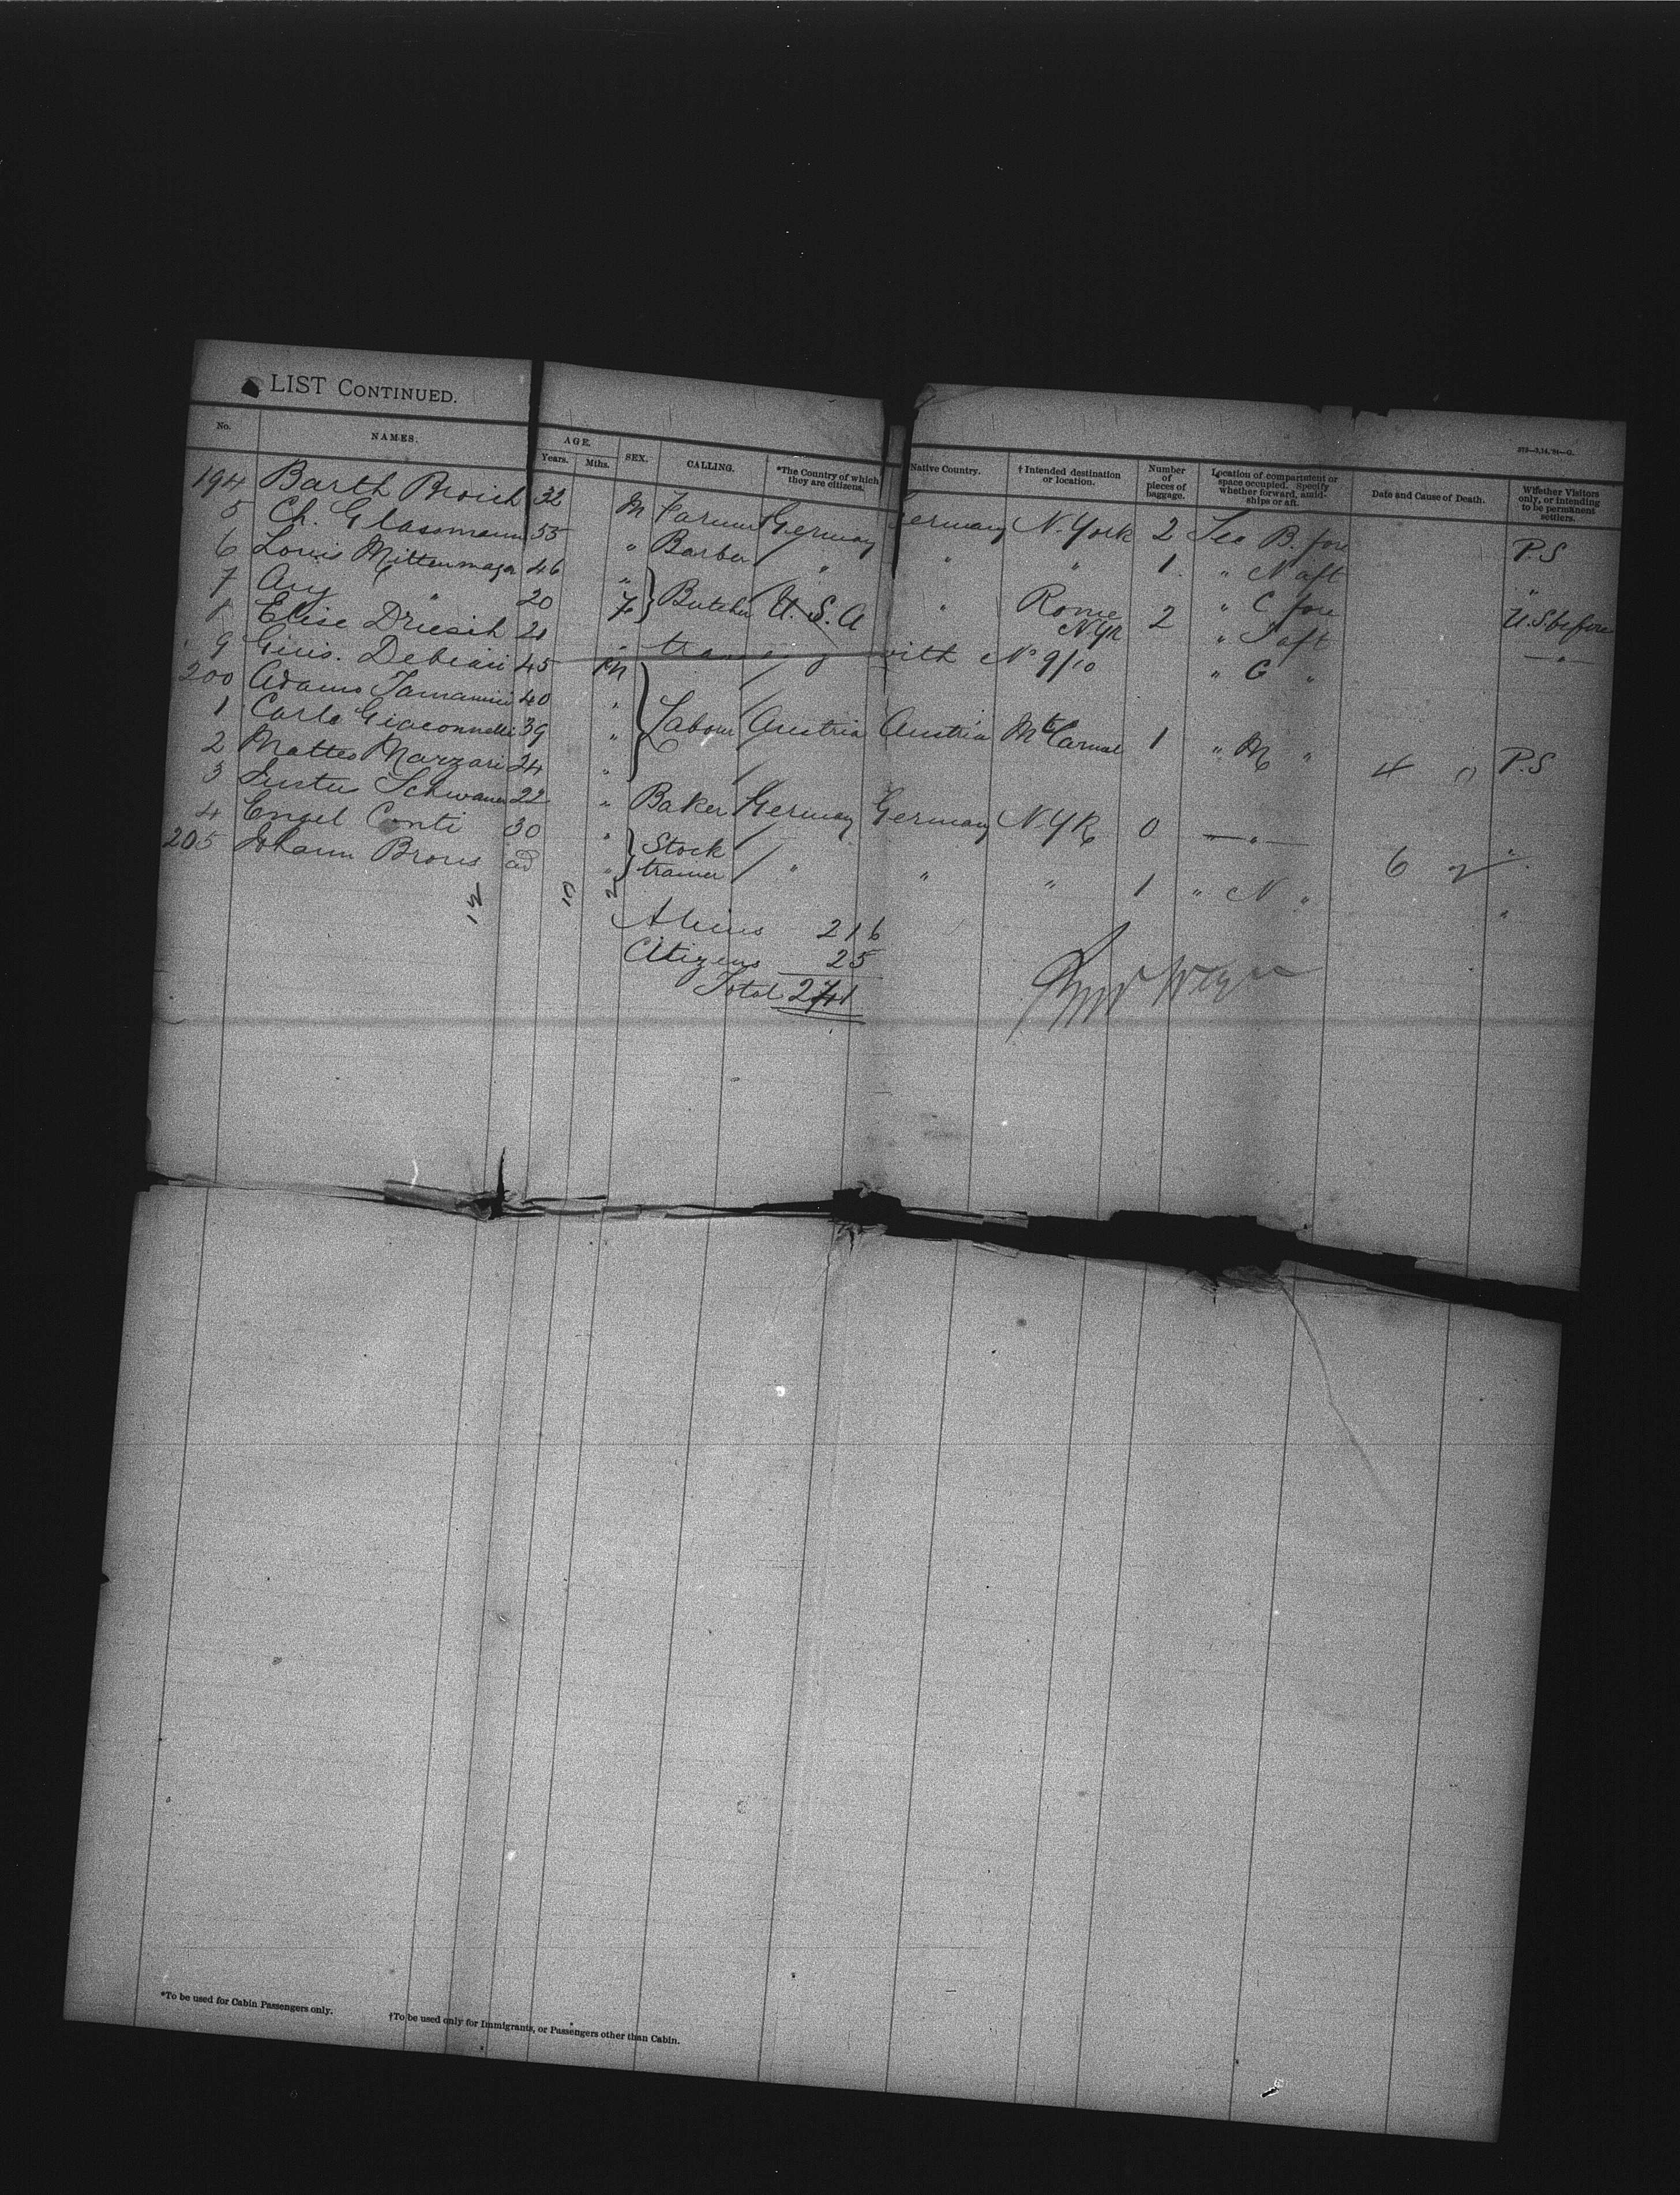 LIST CONTINUED.
272—3,14,'94—G.
No. NAMES. AGE. Years. Mths. SEX. CALLING. *The Country of which they are citizens. Native Country. † Intended destination or location. Number of pieces of baggage. Location of compartment or space occupied. Specify whether forward, amid-ships or aft. Date and Cause of Death. Whether Visitors only, or intending to be permanent settlers.
194 Barth Broich 32 M Farmer Germany Germany N. York 2 B. fore P.S
5 Ch. Glassmann 55 " Barber " " " 1 " N aft "
6 Louis Mittenmayer 46 " Butcher U.S.A " Rome NYk 2 " C fore U.S. before
7 " 20 F " aft — " —
8 Elise Driesch 21 " with No 9/10 " G "
9 Debiasi 45 M
200 Adamo 40 " Labour Austria Austria Mt Carmel 1 " M " 4 P.S
1 Carlo Giacomelli 39 "
2 Matteo Marzari 24 "
3 22 " Baker Germany Germany N.Yk 0 — " — 6 "
4 Engel Conti 30 " Stock " " " 1 " N " "
205 Johann Brons ad "
Aliens 216
Citizens 25
Total 241
*To be used for Cabin Passengers only. †To be used only for Immigrants, or Passengers other than Cabin.